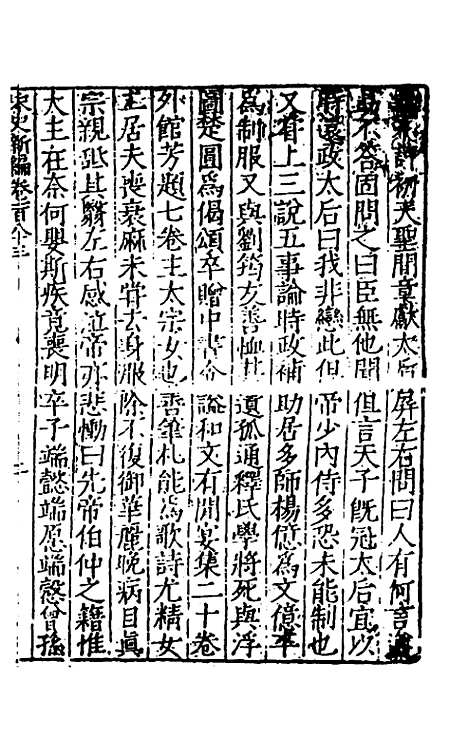 初天聖間章獻太后屏左右問曰人有何言遵
勗不答固問之曰臣無他聞但言天子旣冠太后宜以
時還政太后曰我非戀此但帝少內侍多恐未能制也
又有上三說五事論時政補助居多師楊億爲文億卒
爲制服又與劉筠友善恤其遺孤通釋氏學將死與浮
圖楚圓爲偈頌卒贈中書令謚和文有閒宴集二十卷
外館芳題七卷主太宗女也善筆札能爲歌詩尤精女
工居夫喪衰麻未嘗去身服除不復御華麗晚病目眞
宗親䑛其翳左右感泣帝亦悲慟曰先帝伯仲之籍惟
大主在奈何嬰斯疾竟喪明卒子端懿端愿端愨曾孫
宋史新編卷一百八十三